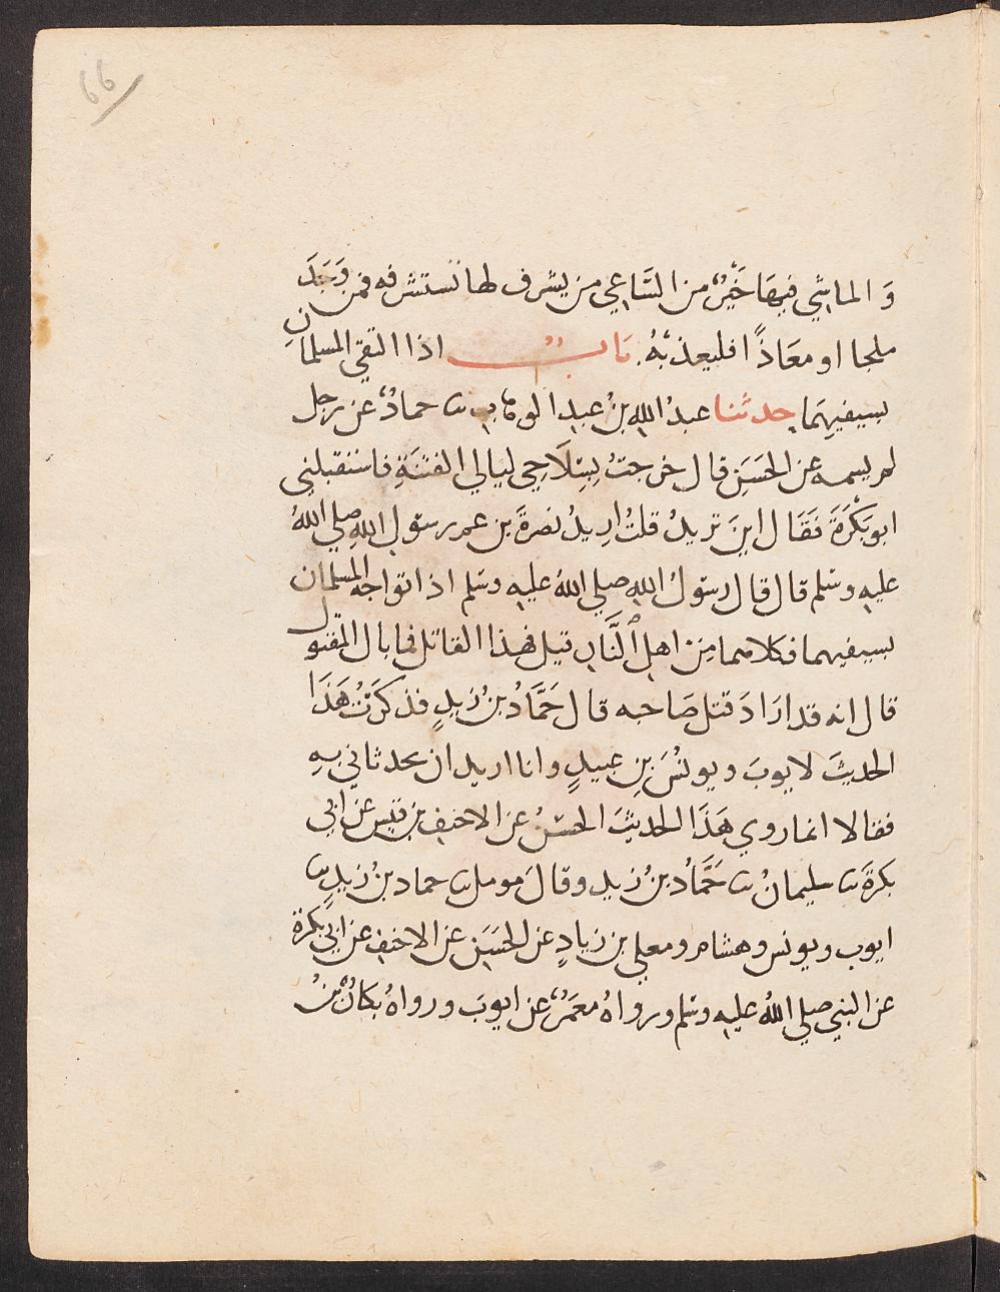 66
وَالماشِي فيهَا خَيْرٌ من السَّاعِي من يشرف لها تستشرفه فمن وَجَدَ
ملجا او معَاذًا فليعذ بهُ. بَابٌ اذا التقى المسلمانِ
بسيفيهِمَا حدثنا عبدُ اللهِ بنُ عبدِ الوهابِ ثنا حمادٌ عن رجل
لم يسمه عن الحَسَنِ قال خرجتُ بِسِلَاحِي ليالي الفتنَةِ فاستقبلنى
ابو بَكْرَةَ فَقَال اينَ تريدُ قلتُ ارِيدُ نصرةَ بن عم رسولِ اللهِ صلي اللهُ
عليهِ وسَلم قال قال رسَولُ اللهِ صلي اللهُ عليه وسَلم اذا تواجه المسلمان
بسيفيهما فكلاهما مِن اهلِ النَّارِ قيل فهذا القاتل فما بال المقتول
قال انه قد ارَادَ قتل صَاحبه قال حَمَّادُ بنُ زيدٍ فذكرتُ هَذَا
الحديثَ لايوبَ ويونسَ بنِ عبيدٍ وانا اريد ان يحدثاني بِهِ
فقالا انما روي هَذَا الحديثَ الحسَنُ عن الاحنفِ بن قيسٍ عن ابي
بكرةَ ثنا سليمانُ ثنا حَمَّادُ بنُ زيدٍ وقالَ مومل ثنا حماد بنُ زيدٍ ثنا
ايوب ويونس وهشام ومعلي بن زيادٍ عن الحَسَنِ عن الاحنفِ عن ابي بَكرة
عن النبي صلي اللهُ عليهِ وسَلم ورواهُ معمَرٌ عن ايوبَ ورواهُ بكارُ بنُ